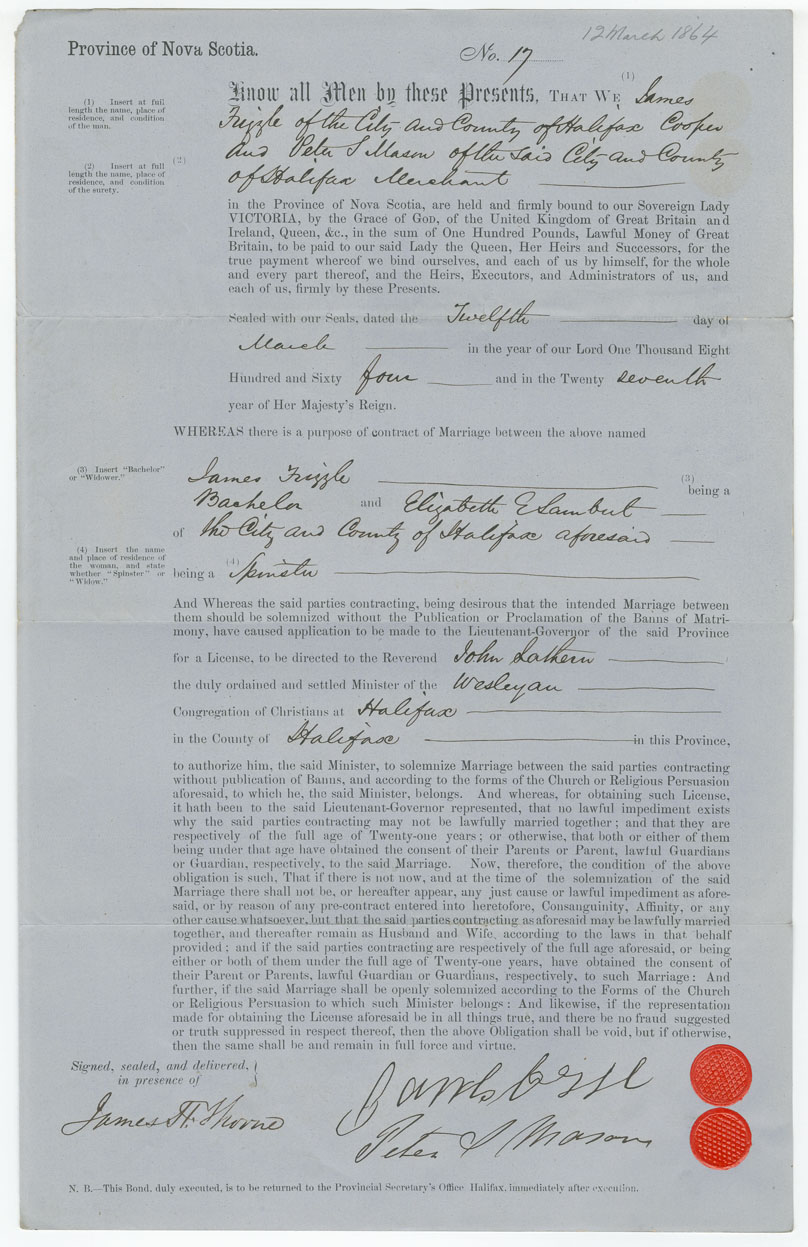 12 March 1864
Province of Nova Scotia.
No. 17
(1) Insert at full
length the name, place of
residence, and condition
of the man.
Know all Men by these Presents, THAT WE (1) James
Frizzle of the City and County of Halifax Cooper
(2) Insert at full
length the name, place of
residence, and condition
of the surety.
(2) And Peter S Mason of the said City and County
of Halifax Merchant
in the Province of Nova Scotia, are held and firmly bound to our Sovereign Lady
VICTORIA, by the Grace of GOD, of the United Kingdom of Great Britain and
Ireland, Queen, &c., in the sum of One Hundred Pounds, Lawful Money of Great
Britain, to be paid to our said Lady the Queen, Her Heirs and Successors, for the
true payment whereof we bind ourselves, and each of us by himself, for the whole
and every part thereof, and the Heirs, Executors, and Administrators of us, and
each of us, firmly by these Presents.
Sealed with our Seals, dated the Twelfth day of
March in the year of our Lord One Thousand Eight
Hundred and Sixty four and in the Twenty seventh
year of Her Majesty's Reign.
WHEREAS there is a purpose of contract of Marriage between the above named
(3) Insert "Bachelor"
or "Widower."
James Frizzle (3) being a
Bachelor and Elizabeth E Lambert
of the City and County of Halifax aforesaid
(4) Insert the name
and place of residence of
the woman, and state
whether "Spinster" or
"Widow."
being a (4) Spinster
And Whereas the said parties contracting, being desirous that the intended Marriage between
them should be solemnized without the Publication or Proclamation of the Banns of Matri-
mony, have caused application to be made to the Lieutenant-Governor of the said Province
for a License, to be directed to the Reverend John Lathern
the duly ordained and settled Minister of the Wesleyan
Congregation of Christians at Halifax
in the County of Halifax in this Province,
to authorize him, the said Minister, to solemnize Marriage between the said parties contracting
without publication of Banns, and according to the forms of the Church or Religious Persuasion
aforesaid, to which he, the said Minister, belongs. And whereas, for obtaining such License,
it hath been to the said Lieutenant-Governor represented, that no lawful impediment exists
why the said parties contracting may not be lawfully married together; and that they are
respectively of the full age of Twenty-one years; or otherwise, that both or either of them
being under that age have obtained the consent of their Parents or Parent, lawful Guardians
or Guardian, respectively, to the said Marriage. Now, therefore, the condition of the above
obligation is such, That if there is not now, and at the time of the solemnization of the said
Marriage there shall not be, or hereafter appear, any just cause or lawful impediment as afore-
said, or by reason of any pre-contract entered into heretofore, Consanguinity, Affinity, or any
other cause whatsoever, but that the said parties contracting as aforesaid may be lawfully married
together, and thereafter remain as Husband and Wife, according to the laws in that behalf
provided; and if the said parties contracting are respectively of the full age aforesaid, or being
either or both of them under the full age of Twenty-one years, have obtained the consent of
their Parent or Parents, lawful Guardian or Guardians, respectively, to such Marriage: And
further, if the said Marriage shall be openly solemnized according to the Forms of the Church
or Religious Persuasion to which such Minister belongs: And likewise, if the representation
made for obtaining the License aforesaid be in all things true, and there be no fraud suggested
or truth suppressed in respect thereof, then the above Obligation shall be void, but if otherwise,
then the same shall be and remain in full force and virtue.
Signed, sealed, and delivered,
in presence of
James H. Thorne
Peter S Mason
N. B.—This Bond, duly executed, is to be returned to the Provincial Secretary's Office Halifax, immediately after execution.